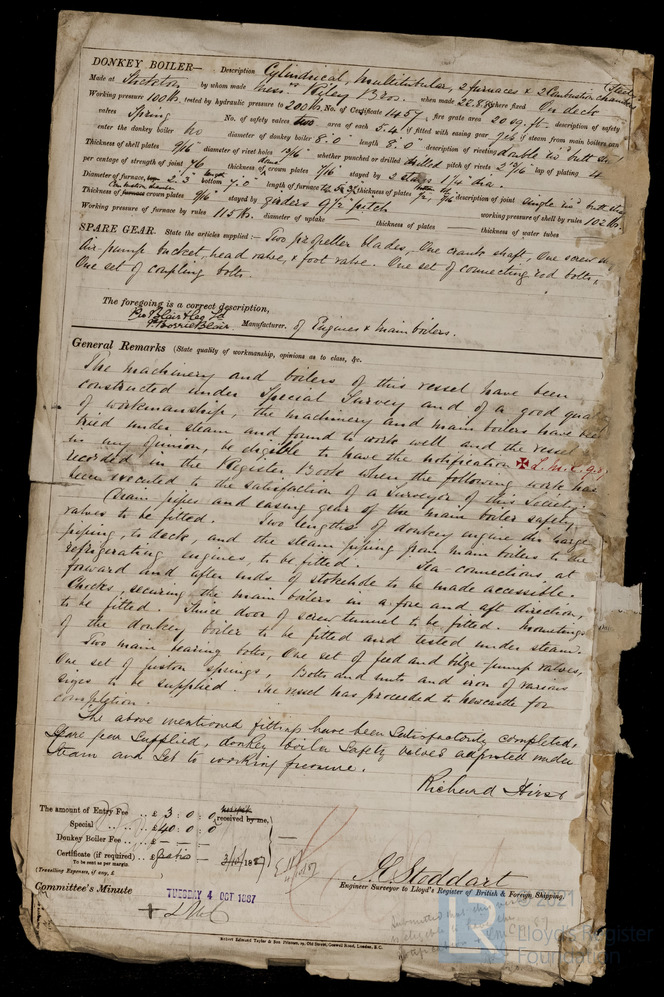 DONKEY BOILER— Description Cylindrical, multitubular, 2 furnaces & 2 Combustion chambers (Steel)
Made at Stockton by whom made Messrs Riley Bros. when made 22.8.87 where fixed On deck
Working pressure 100 lbs. tested by hydraulic pressure to 200 lbs. No. of Certificate 1457 fire grate area 20 sq. ft. description of safety
valves Spring No. of safety valves two area of each 5.4" if fitted with easing gear yes if steam from main boilers can
enter the donkey boiler no diameter of donkey boiler 8'.0" length 8'.0" description of riveting double riv. butt str.
Thickness of shell plates 9/16 diameter of rivet holes 13/16 whether punched or drilled drilled pitch of rivets 2 13/16 lap of plating 4
per centage of strength of joint 70 thickness of dome crown plates 7/16 stayed by 2 stays 1 1/4 dia.
Diameter of furnace, top 2'.3" length bottom 7'.0" length of furnace thickness of plates description of joint single riv. butt strap
Thickness of furnace Combustion chamber crown plates 9/16 stayed by girders 9 1/2" pitch working pressure of shell by rules 102 lbs.
Working pressure of furnace by rules 115 lbs. diameter of uptake — thickness of plates — thickness of water tubes —
SPARE GEAR. State the articles supplied:— Two propeller blades, One crank shaft, One screw
Air pump bucket, head valve, & foot valve. One set of connecting rod bolts,
One set of coupling bolts.
The foregoing is a correct description,
Pro Blair & Co. Ld
Manufacturer. of Engines & main boilers.
General Remarks (State quality of workmanship, opinions as to class, &c.
The machinery and boilers of this vessel have been
constructed under Special Survey and of a good quality
of workmanship, the machinery and main boilers have been
tried under steam and found to work well and the vessel
in my opinion, be eligible to have the notification ✠ L.M.C. 9.87
recorded in the Register Book when the following work has
been executed to the satisfaction of a Surveyor of this Society.
Drain pipes and easing gear of the main boiler safety
valves to be fitted. Two lengths of donkey engine
piping, to deck, and the steam piping from main boilers to the
refrigerating engines, to be fitted. Sea connections at
forward and after ends of stokehole to be made accessible.
Chocks, securing the main boilers in a fore and aft direction,
to be fitted. Sluice door of screw tunnel to be fitted. Mountings
of the donkey boiler to be fitted and tested under steam.
Two main bearing bolts, One set of feed and bilge pump valves,
One set of piston springs, Bolts and nuts and iron of various
sizes to be supplied. The vessel has proceeded to Newcastle for
completion.
The above mentioned fittings have been satisfactorily completed,
Spare gear supplied, donkey boiler safety valves adjusted under
steam and set to working pressure.
Richard Hirst
The amount of Entry Fee .. £ 3 : 0 : 0 received by me,
Special .. .. £40 : 0 : 0
Donkey Boiler Fee .. £ — : — : —
Certificate (if required) .. £ gratis — 3/10/1887
To be sent as per margin.
(Travelling Expenses, if any, £
M Stoddart
Engineer Surveyor to Lloyd's Register of British & Foreign Shipping.
Committee's Minute TUESDAY 4 OCT 1887
Robert Edmund Taylor & Son Printers, 19, Old Street, Goswell Road, London, E.C.
© 2021
LR
Lloyd's Register
Foundation